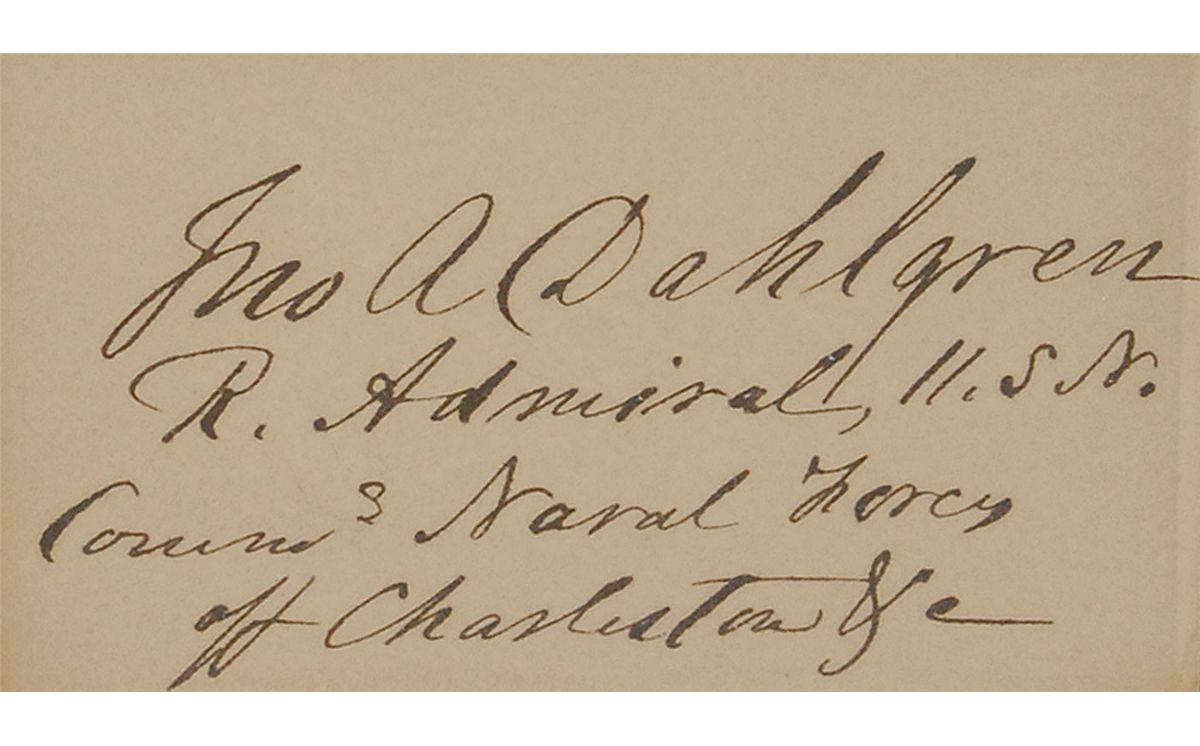 Jno A Dahlgren
R. Admiral, U.S N.
Comm^g Naval Forces
off Charleston &c